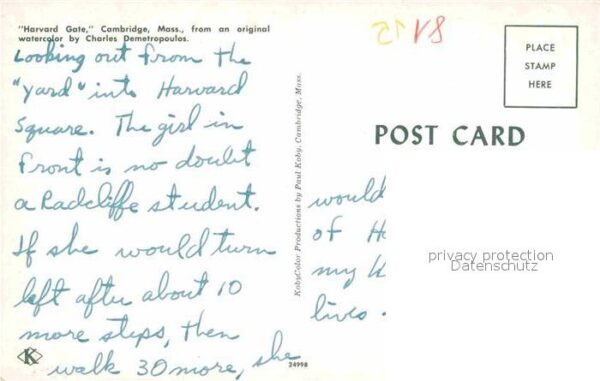 "Harvard Gate," Cambridge, Mass., from an original
watercolor by Charles Demetropoulos.
Looking out from the
"yard" into Harvard
Square. The girl in
front is no doubt
a Radcliffe student.
If she would turn
left after about 10
more steps, then
walk 30 more, she
K
KobyColor Productions by Paul Koby, Cambridge, Mass.
24998
PLACE
STAMP
HERE
POST CARD
would
of
my
lives.
privacy protection
Datenschutz